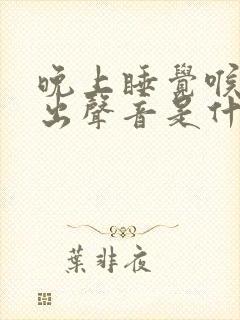 晚上睡覺喉
出聲音是什
葉非夜